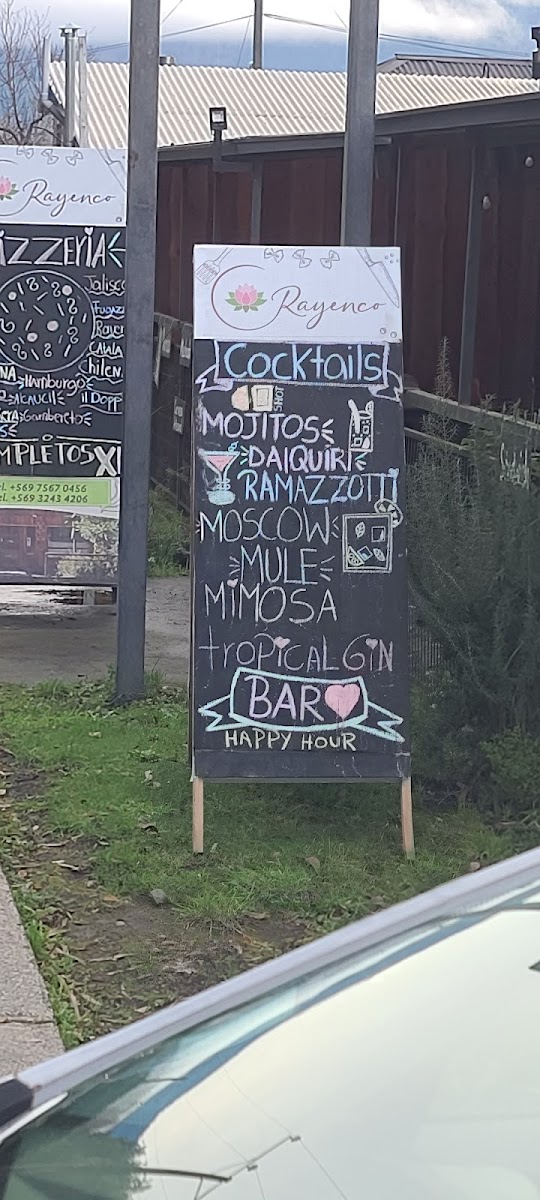 Rayenco
IZZERIA
Jalisc
Fugaz
CAVLA
Chilen
Hamburgo
il Dopp
Gambereto
MPLETOS X
el. +569 7567 0456
el. +569 3243 4206
Rayenco
Cocktails
MOJITOS
DAIQUIRI
RAMAZZOTTI
MOSCOW
MULE
MiMOSA
tROPiCAL GiN
BAR
HAPPY HOUR